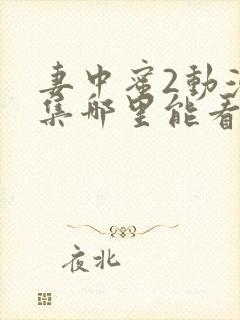 妻中蜜2動
集哪里能看
夜北